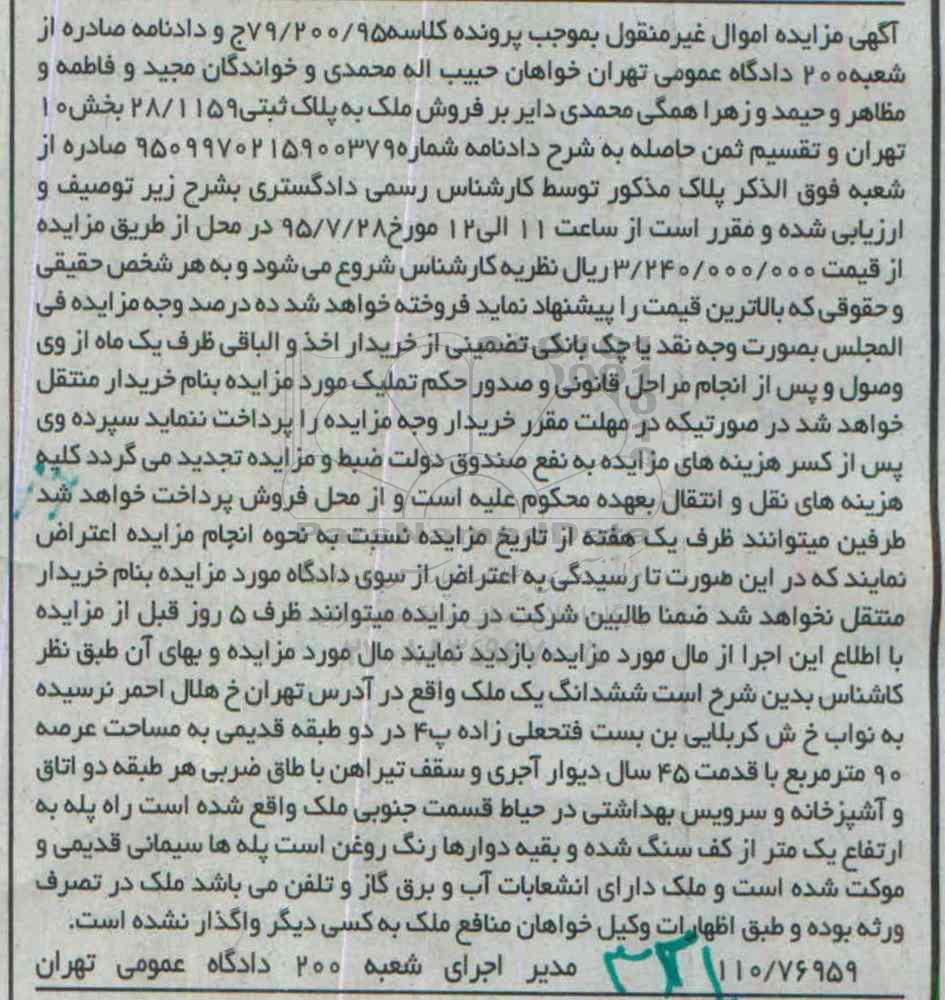 آگهی مزایده اموال غیرمنقول بموجب پرونده کلاسه۷۹/۲۰۰/۹۵ج و دادنامه صادره از
شعبه۲۰۰ دادگاه عمومی تهران خواهان حبیب اله محمدی و خواندگان مجید و فاطمه و
مظاهر و حیمد و زهرا همگی محمدی دایر بر فروش ملک به پلاک ثبتی۲۸/۱۱۵۹ بخش۱۰
تهران و تقسیم ثمن حاصله به شرح دادنامه شماره۹۵۰۹۹۷۰۲۱۵۹۰۰۳۷۹ صادره از
شعبه فوق الذکر پلاک مذکور توسط کارشناس رسمی دادگستری بشرح زیر توصیف و
ارزیابی شده و مقرر است از ساعت ۱۱ الی۱۲ مورخ۹۵/۷/۲۸ در محل از طریق مزایده
از قیمت ۳/۲۴۰/۰۰۰/۰۰۰ریال نظریه کارشناس شروع می شود و به هر شخص حقیقی
و حقوقی که بالاترین قیمت را پیشنهاد نماید فروخته خواهد شد ده درصد وجه مزایده فی
المجلس بصورت وجه نقد یا چک بانکی تضمینی از خریدار اخذ و الباقی ظرف یک ماه از وی
وصول و پس از انجام مراحل قانونی و صدور حکم تملیک مورد مزایده بنام خریدار منتقل
خواهد شد در صورتیکه در مهلت مقرر خریدار وجه مزایده را پرداخت ننماید سپرده وی
پس از کسر هزینه های مزایده به نفع صندوق دولت ضبط و مزایده تجدید می گردد کلیه
هزینه های نقل و انتقال بعهده محکوم علیه است و از محل فروش پرداخت خواهد شد
طرفین میتوانند ظرف یک هفته از تاریخ مزایده نسبت به نحوه انجام مزایده اعتراض
نمایند که در این صورت تا رسیدگی به اعتراض از سوی دادگاه مورد مزایده بنام خریدار
منتقل نخواهد شد ضمنا طالبین شرکت در مزایده میتوانند ظرف ۵ روز قبل از مزایده
با اطلاع این اجرا از مال مورد مزایده بازدید نمایند مال مورد مزایده و بهای آن طبق نظر
کاشناس بدین شرخ است ششدانگ یک ملک واقع در آدرس تهران خ هلال احمر نرسیده
به نواب خ ش کربلایی بن بست فتحعلی زاده پ۴ در دو طبقه قدیمی به مساحت عرصه
۹۰ مترمربع با قدمت ۴۵ سال دیوار آجری و سقف تیراهن با طاق ضربی هر طبقه دو اتاق
و آشپزخانه و سرویس بهداشتی در حیاط قسمت جنوبی ملک واقع شده است راه پله به
ارتفاع یک متر از کف سنگ شده و بقیه دوارها رنگ روغن است پله ها سیمانی قدیمی و
موکت شده است و ملک دارای انشعابات آب و برق گاز و تلفن می باشد ملک در تصرف
ورثه بوده و طبق اظهارات وکیل خواهان منافع ملک به کسی دیگر واگذار نشده است.
۱۱۰/۷۶۹۵۹ مدیر اجرای شعبه ۲۰۰ دادگاه عمومی تهران